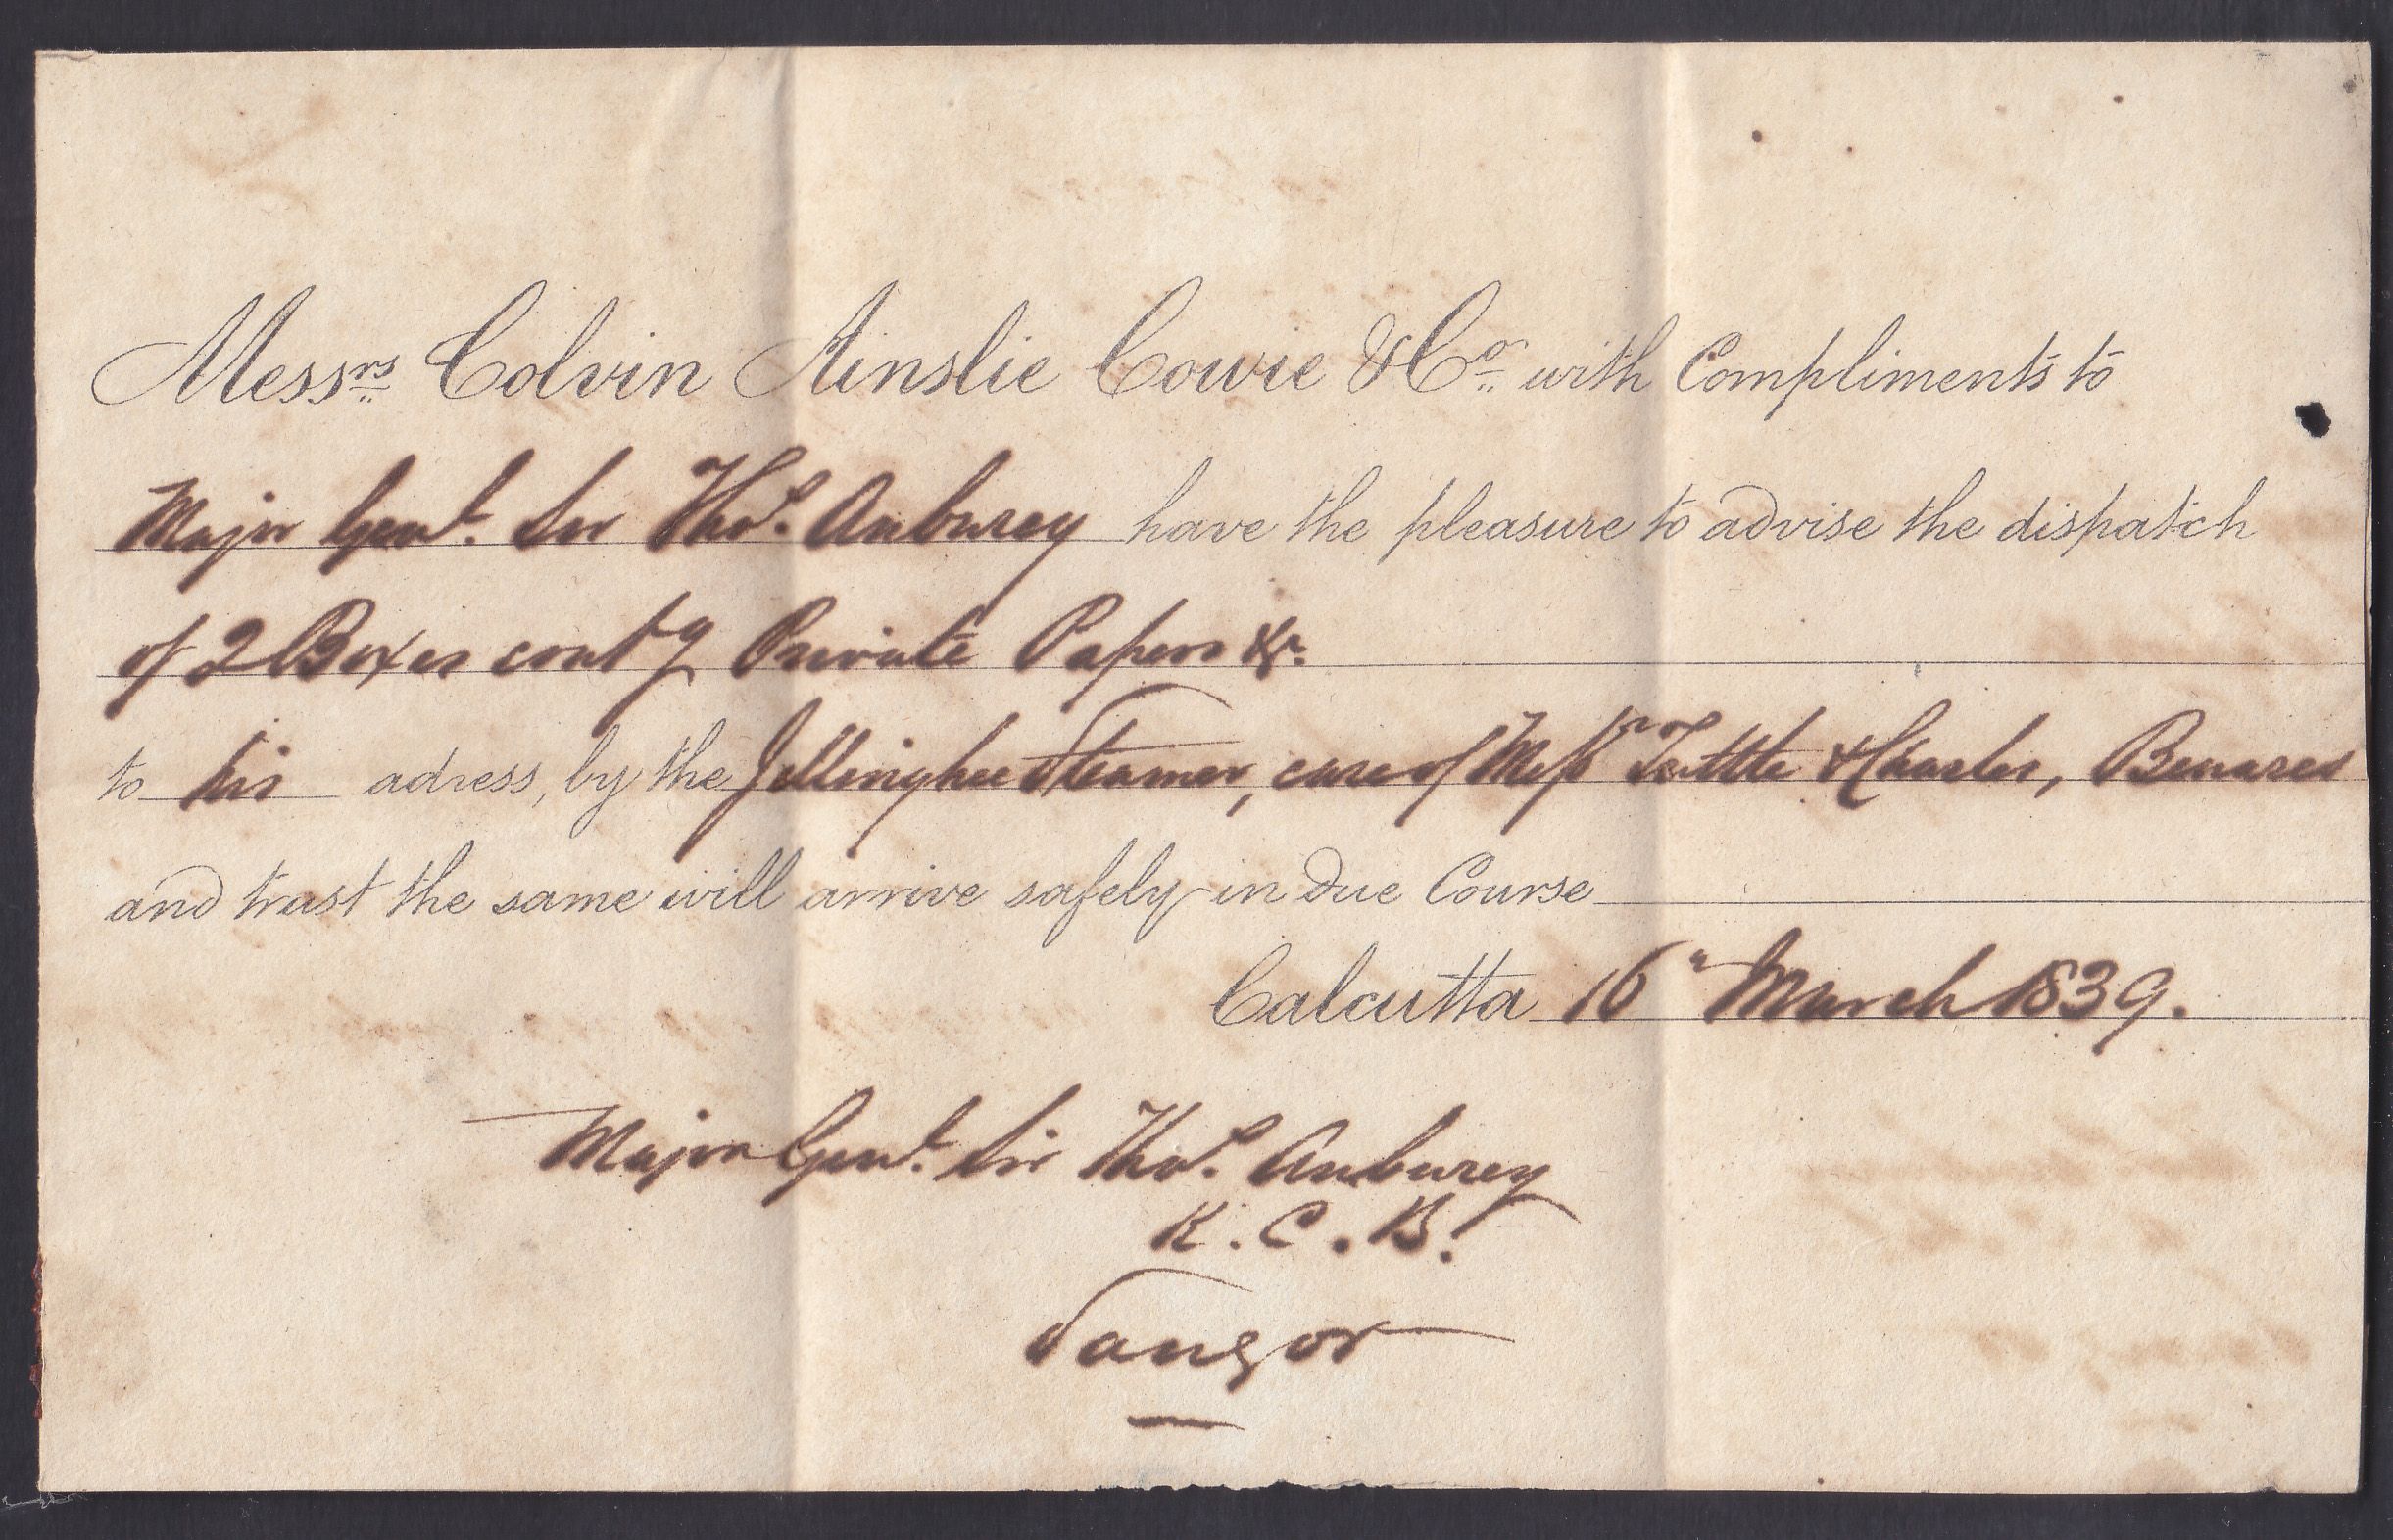 Messrs Colvin Ainslie Cowie & Co. with Compliments to
Major Genl. Sir Thos. Anburey have the pleasure to advise the dispatch
of 2 Boxes contg Private Papers &c.
to his adress, by the Jellinghee Steamer, care of Messrs Tuttle & Charles, Benares
and trust the same will arrive safely in due Course
Calcutta 16" March 1839.
Major Genl. Sir Thos. Anburey
K. C. B.
Saugor